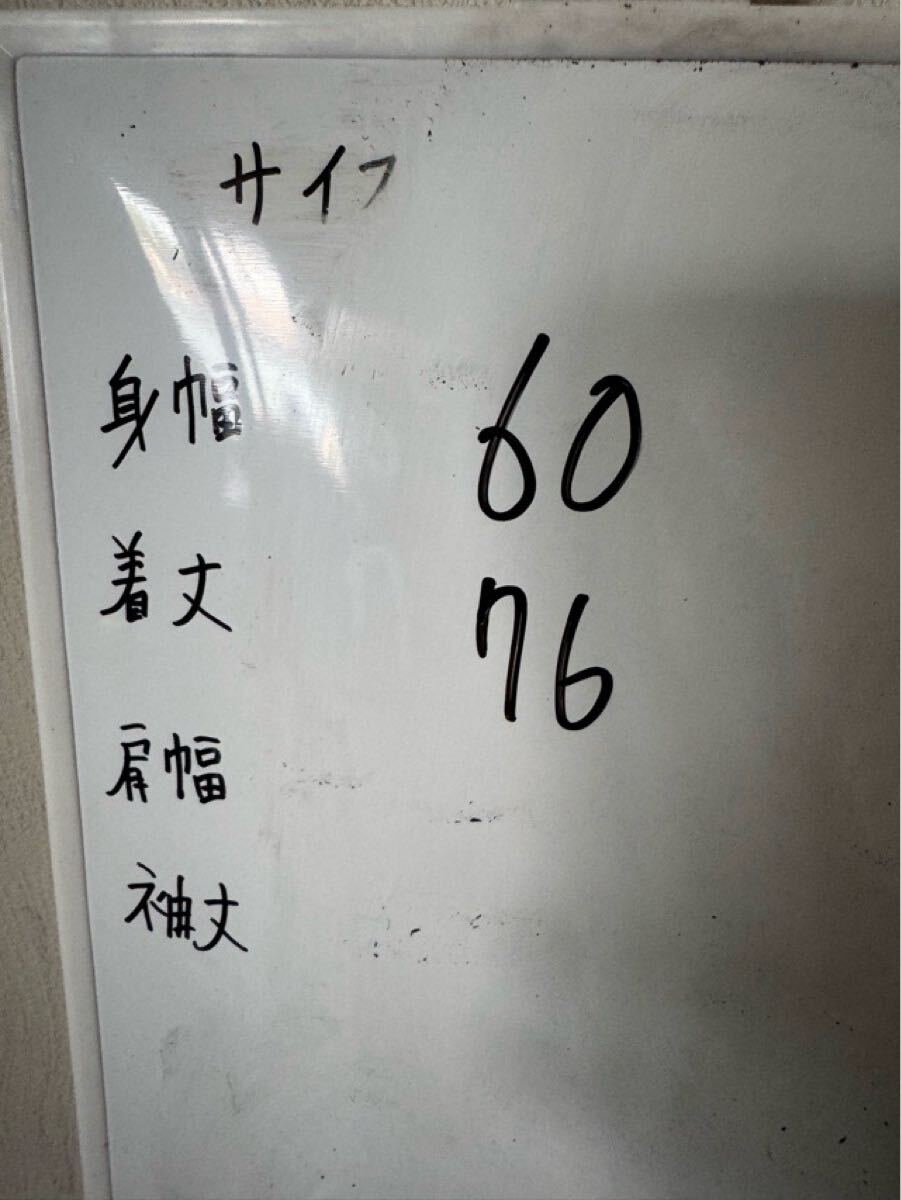 サイフ
身幅 60
着丈 76
肩幅
袖丈